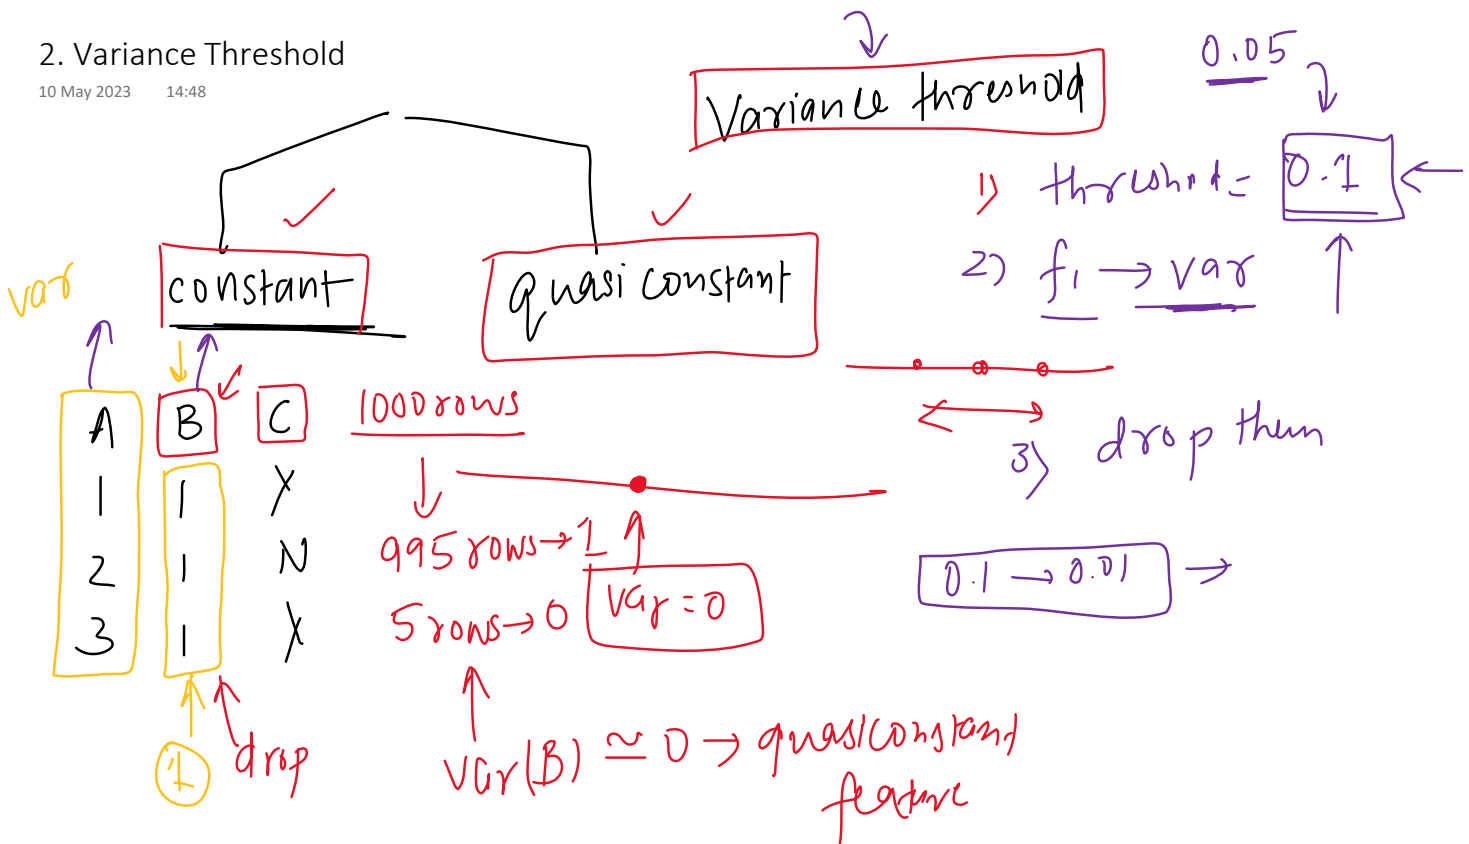 2. Variance Threshold
10 May 2023 14:48
Variance threshold
0.05
1) threshold = 0.1
2) f1 → var
constant
quasi constant
var
A B C
1 1 Y
2 1 N
3 1 Y
1000 rows
995 rows → 1
5 rows → 0
var = 0
3) drop them
0.1 → 0.01 →
1
drop
var(B) ≃ 0 → quasiconstant
feature